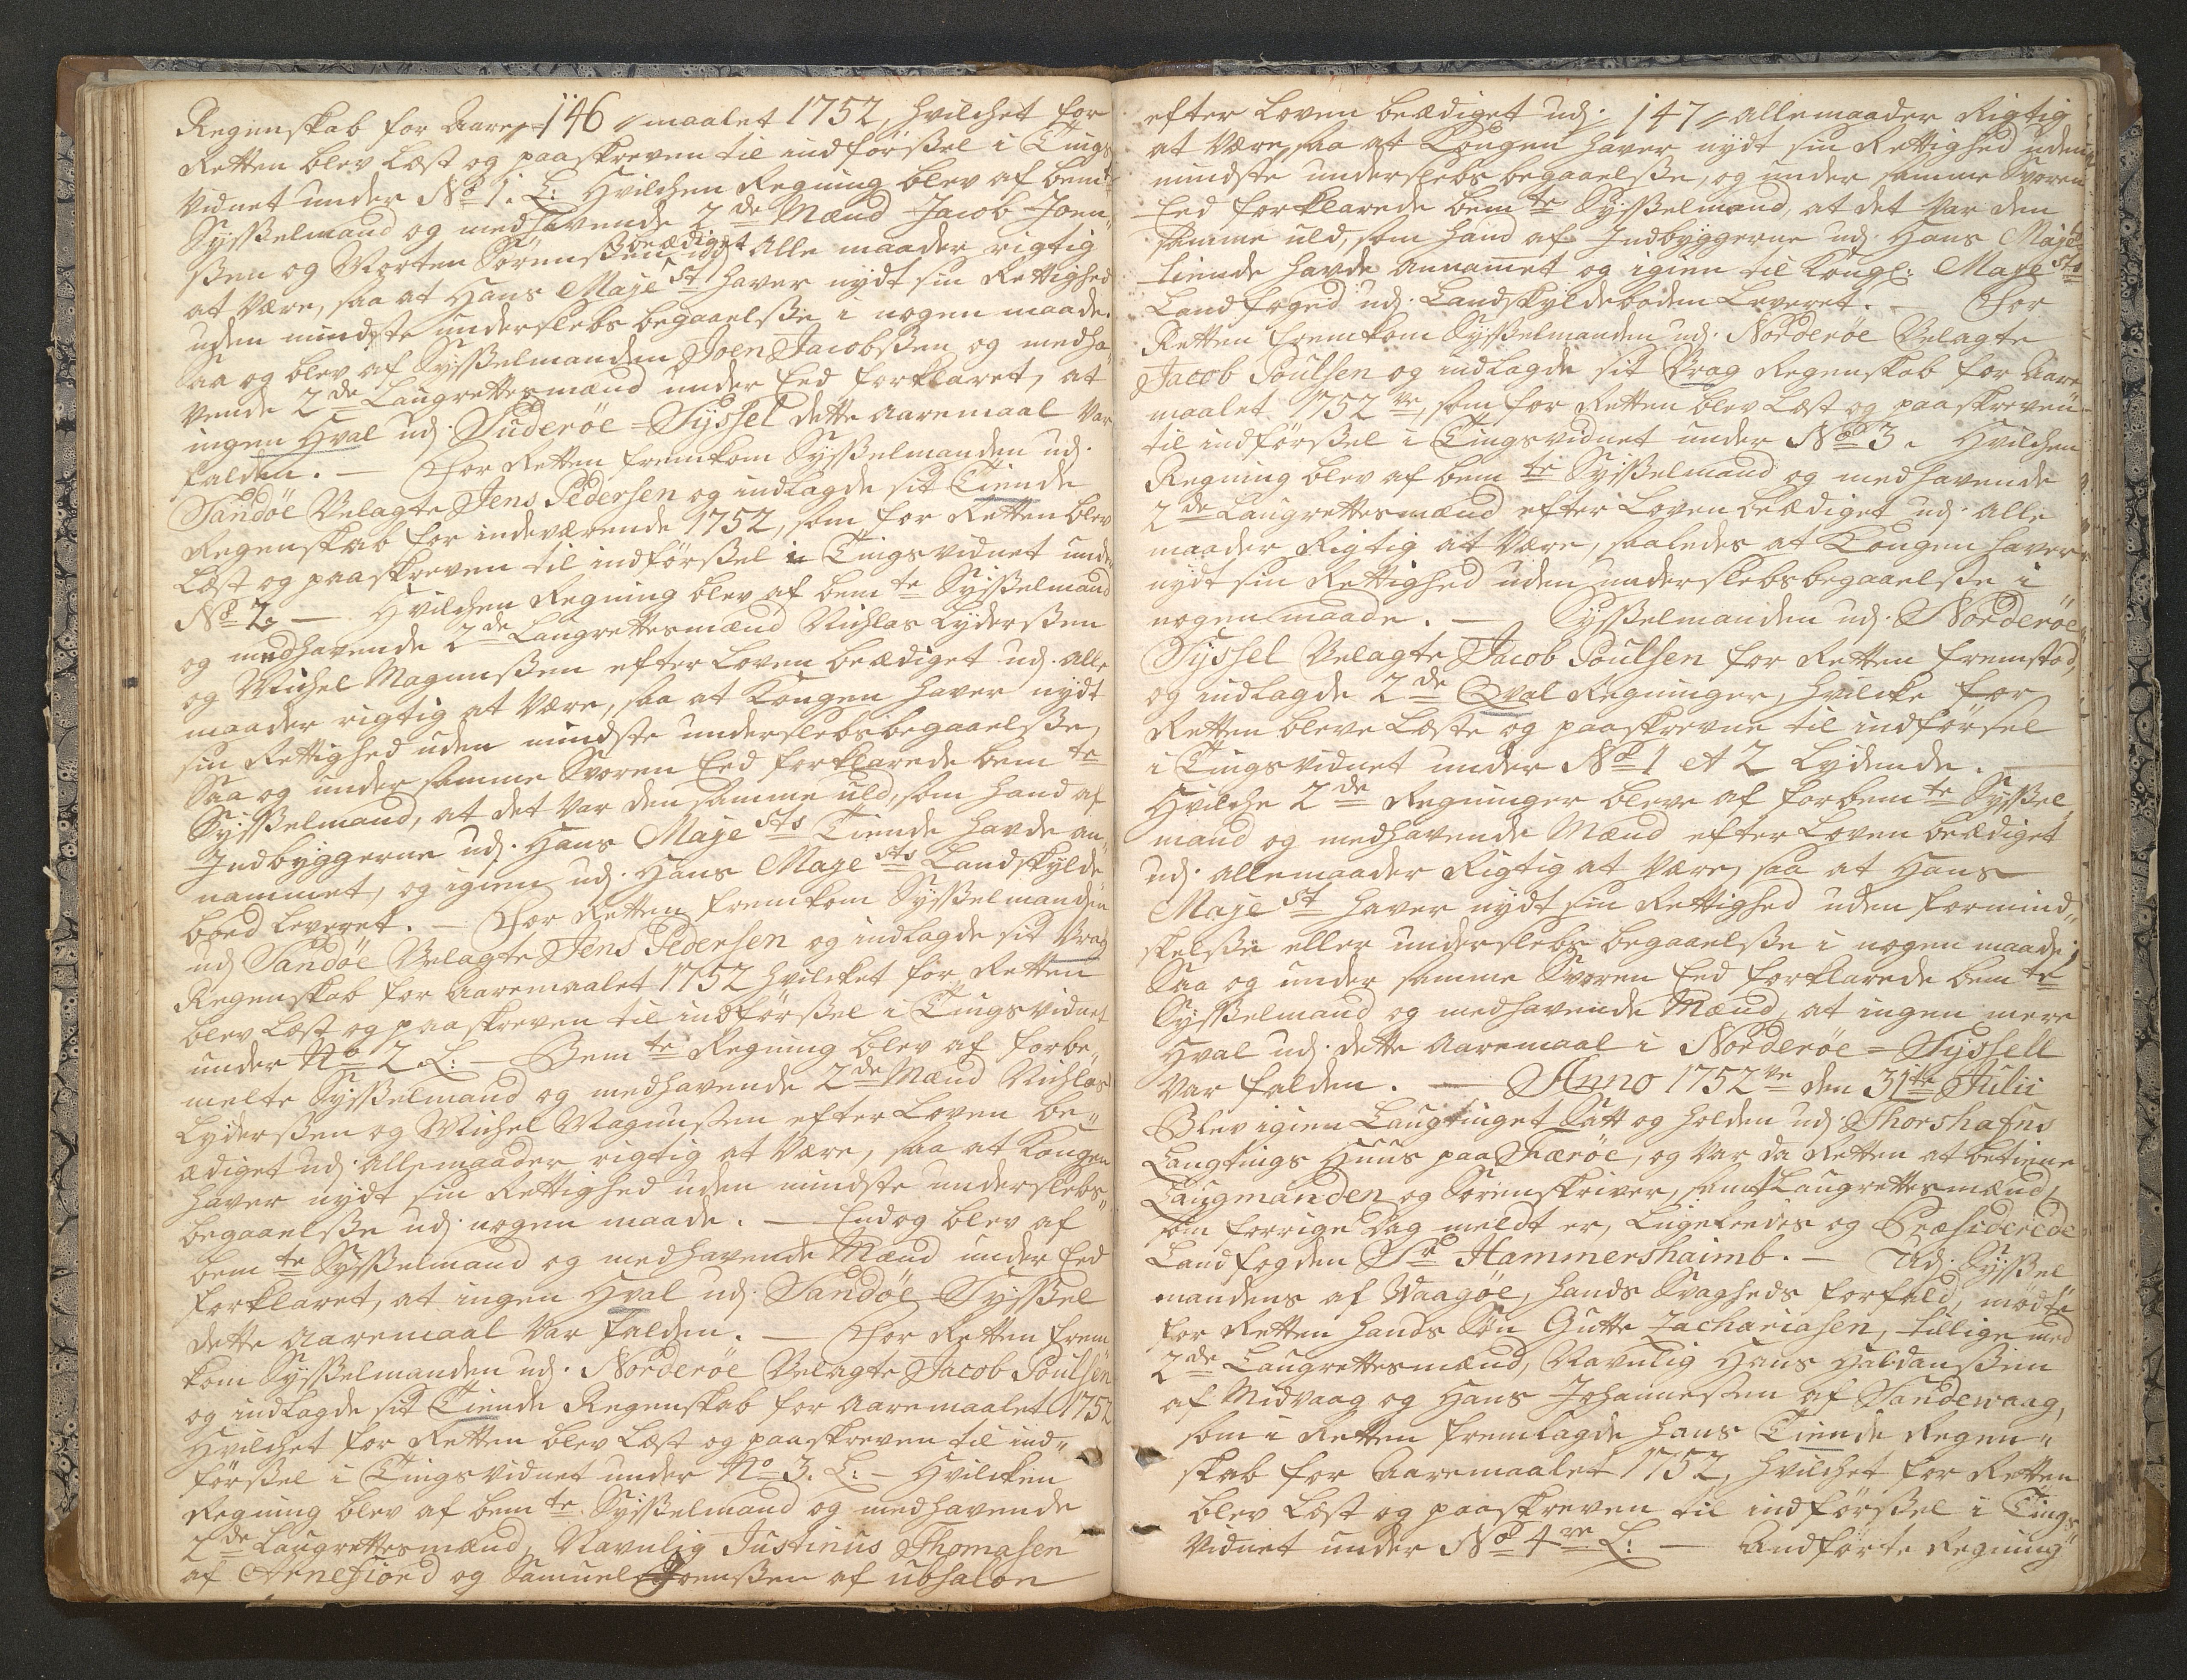 Regenskab for Aare 146 maalet 1752, hvilchet for
Retten blev Læst og paaskreven til indförßel i Tings
vidnet under No 1. L: Hvilchen Regning blev af bemte
Sysßelmand og medhavende 2de Mænd Jacob Joen„
ßen og Morten Sörenßen beædiget udj Alle maader rigtig
at Være, saa at Hans Majest haver nydt sin Rettighed
uden mindste underslebs begaaelße i nogen maade.
Saa og blev af Sysßelmanden Joen Jacobßen og medha„
vende 2de Laugrettesmænd under Eed forklaret, at
ingen Hval udj Suderöe-Syssel dette Aaremaal var
falden. — For Retten fremkom Sysßelmanden udj.
Sandöe Velagte Jens Pedersen og indlagde sit Tiende
Regenskab for indeværende 1752, som for Retten blev
Læst og paaskreven til indförßel i Tingsvidnet under
No 2. — Hvilchen Regning blev af bemte Sysßelmand
og medhavende 2de Laugrettesmænd Nichlas Lyderßen
og Michel Magnusßen efter Loven beædiget udj. alle
maader rigtig at Være, saa at Kongen haver nydt
sin Rettighed uden mindste underslebs begaaelße,
Saa og under samme Svoren Eed forklarede bemte
Sysßelmand, at det var den samme uld, som hand af
Indbyggerne udj. Hans Majests Tiende havde an„
nammet, og igien udj. Hans Majests Landskylde
boed leveret. — For Retten fremkom Sysßelmanden
udj Sandöe Velagte Jens Pedersen og indlagde sit Vrag
Regenskab for Aaremaalet 1752 hvilcket for Retten
blev Læst og paaskreven til indförßel i Tingsvidnet
under No 2 L: — Bemte Regning blev af forbe„
melte Sysßelmand og medhavende 2de Mænd Nichlas
Lyderßen og Michel Magnusßen efter Loven be„
ædiget udj. Alle maader rigtig at Være, saa at Kongen
haver nydt sin Rettighed uden mindste underslebs„
begaaelße udj. nogen maade. — Endog blev af
bemte Sysßelmand og medhavende Mænd under Eed
forklaret, at ingen Hval udj. Sandöe-Sysßel
dette Aaremaal Var falden. — For Retten frem„
kom Sysßelmanden udj. Norderöe Velagte Jacob Poulsen
og indlagde sit Tiende Regenskab for Aaremaalet 1752
Hvilchet for Retten blev Læst og paaskreven til ind„
förßel i Tingsvidnet under No 3. L: — Hvilcken
Regning blev af bemte Sysßelmand og medhavende
2de Laugrettesmænd, Navnlig Justinus Thomasen
af Arnefiord og Samuel Joenßen af ubsalon
efter Loven beædiget udj 147 alle maader Rigtig
at Være, saa at Kongen haver nydt sin Rettighed uden
mindste underslebs begaaelße, og under samme Svoren
Eed forklarede bemte Sysßelmand, at det Var den
samme uld, som hand af Indbyggerne udj. Hans Majests
Tiende havde Annamet og igien til Kongl: Majests
Landfoged udj. Landskyldeboden Leveret. — For
Retten fremkom Sysßelmanden udj. Norderöe Velagte
Jacob Poulsen og indlagde sit Vrag Regenskab for Aare
maalet 1752ve, som for Retten blev Læst og paaskreven
til indförßel i Tingsvidnet under No 3. Hvilchen
Regning blev af bemte Sysßelmand og medhavende
2de Laugrettesmænd efter Loven beædiget udj. alle
maader Rigtig at Være, saaledes at Kongen haver
nydt sin Rettighed uden underslebs begaaelße i
nogen maade. — Sysßelmanden udj. Norderöe
Syssel Velagte Jacob Poulsen for Retten fremstod,
og indlagde 2de Qval Regninger, hvilcke for
Retten bleve Læste og paaskrevne til indförsel
i Tingsvidnet under No 1 et 2 Lydende. —
Hvilche 2de Regninger bleve af forbemte Sysßel
mand og medhavende Mænd efter Loven beædiget
udj. alle maader Rigtig at Være, saa at Hans
Majest haver nydt sin Rettighed uden formind„
skelße eller underslebs begaaelße i nogen maade;
Saa og under samme Svoren Eed forklarede bemte
Sysßelmand og medhavende Mænd, at ingen mere
Hval udj. dette Aaremaal i Norderöe-Syssell
Var falden. — Anno 1752ve den 31te Julii
Blev igien Laugtinget Satt og holden udj. Thorshafns
Laugtings Huus paa Færöe, og Var da Retten at betiene
Laugmanden og Sorenskriver, samt Laugrettesmænd,
som forrige Dag meldt er, Ligeleedes og Præsiderede
Landfogden Sr Hammershaimb. — Udj. Sysßel
mandens af Waagöe, hands Svagheds forfald, mödte
for Retten hands Sön Gutte Zachariasen, tillige med
2de Laugrettesmænd, Navnlig Hans Haldanßen
af Midvaag og Hans Johannesen af Sandewaag,
som i Retten fremlagde hans Tiende Regen„
skab for Aaremaalet 1752, hvilchet for Retten
blev Læst og paaskreven til indförßel i Tings
Vidnet under No 4re L: — Andförte Regning